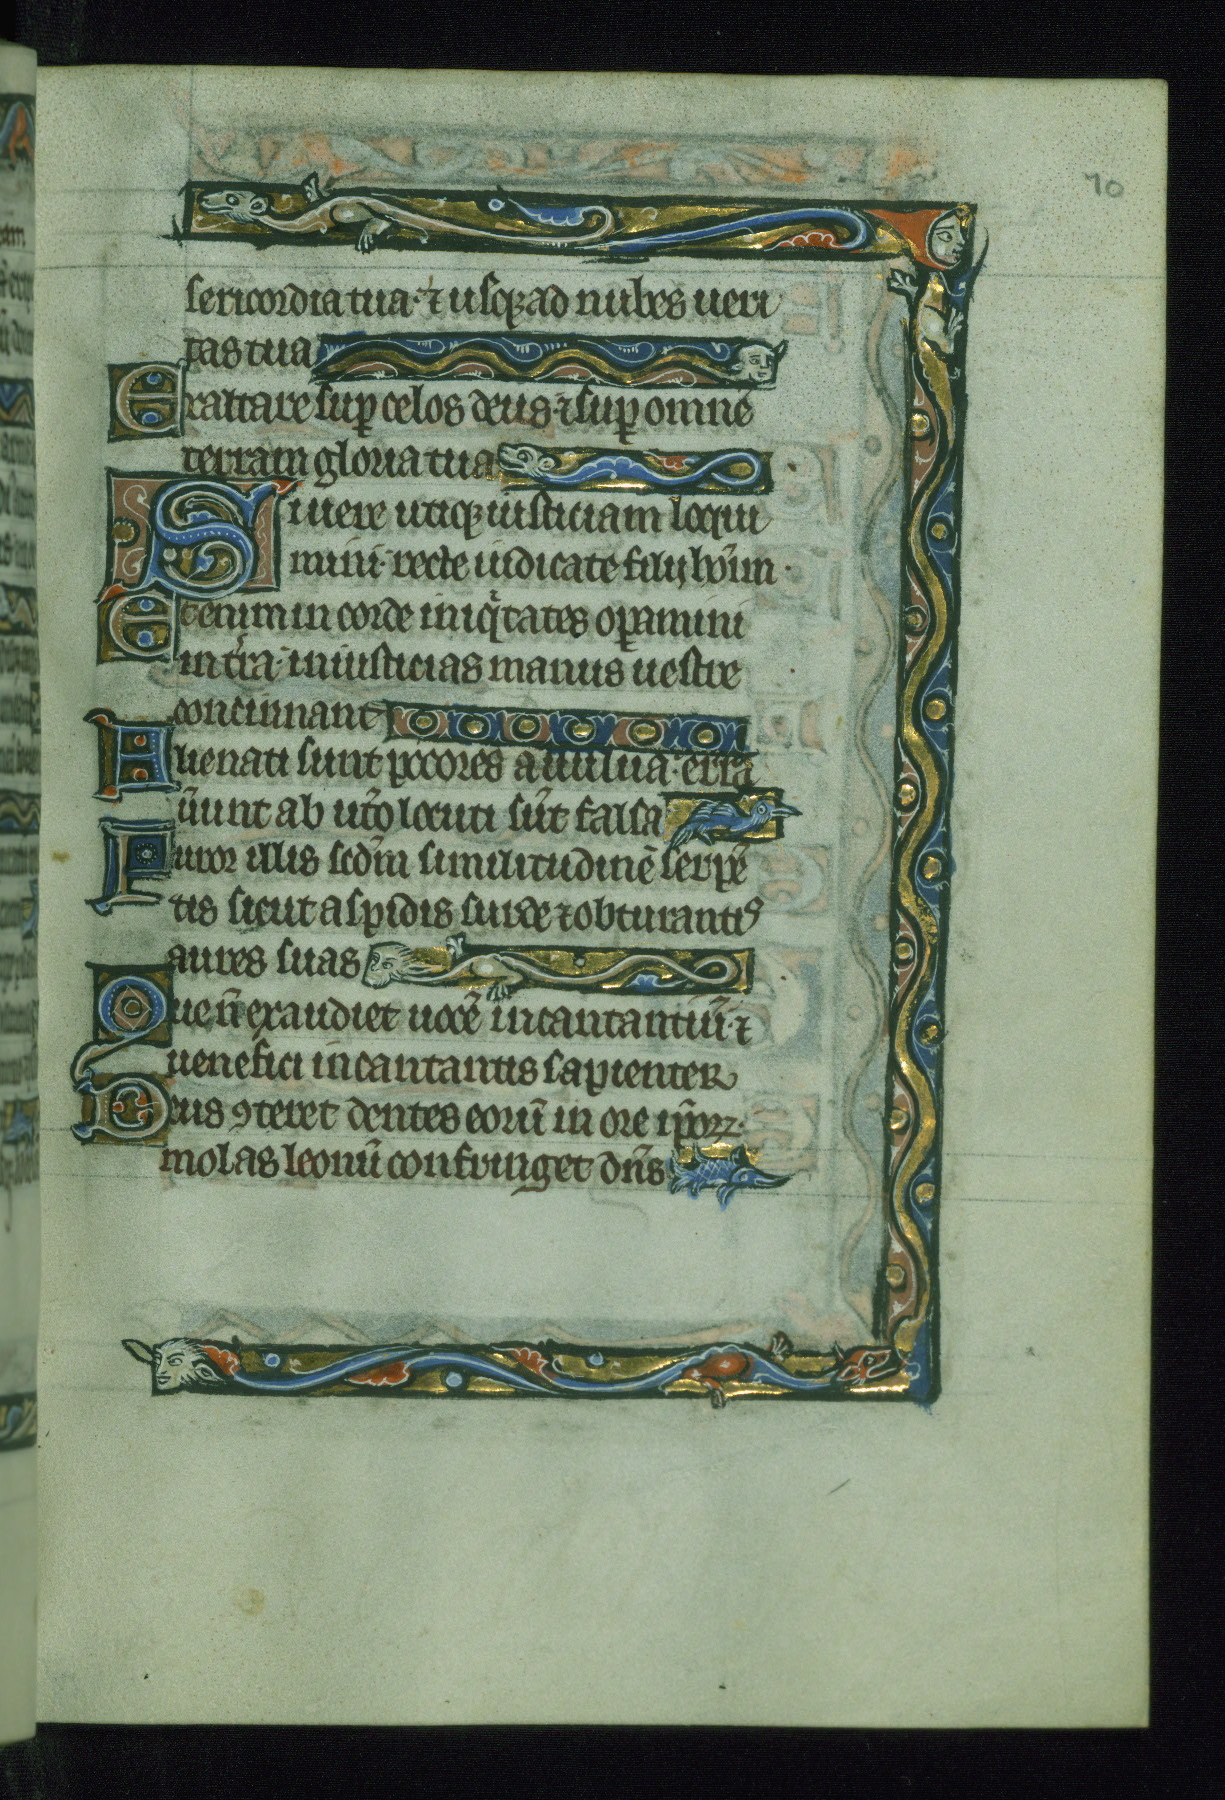 70
sericordia tua· ⁊ usqꝫ ad nubes ueri
tas tua
Exaltare suꝑ celos deus· ⁊ suꝑ omnē
terram gloria tua
Si uere utiqꝫ iusticiam loqui
mini· recte iudicate filij ho᷑im·
Etenim in corde iniqͥtates oꝑamini
in t᷑ra· iniusticias manus uestre
concinnant
Alienati sunt pc̄cores a uulua· erra
ue᷑unt ab ut᷑o locuti su᷑t falsa
Furor illis scd᷑m similitudinē serpē
tis sicut aspidis surde ⁊ obturantiꝰ
aures suas
Que n̄ exaudiet uocē incantantiū· ⁊
uenefici incantantis sapienter
Deus ꝯteret dentes eorū in ore ip᷑oꝝ·
molas leonū confringet dn᷑s